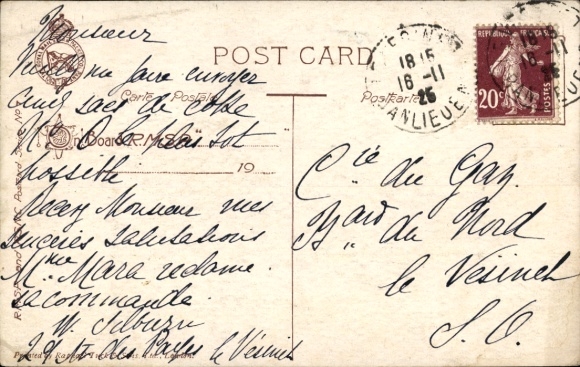 POST CARD
Carte Postale
Postkarte
Monsieur
Veuillez me faire envoyer
sacs de coke
On Board R.M.S.P. "
le plus tôt
possible
19
Recevez Monsieur mes
sincères salutations
Mme Mara réclame
sa commande
W.
29 Bd des Pages le Vésinet
Printed by Raphael Tuck & Sons, Ltd., London.
18 15
16 -11
25
REPUBLIQUE FRANÇAISE
20c
POSTES
Cie du Gaz
Bard du Nord
le Vésinet
S. O.